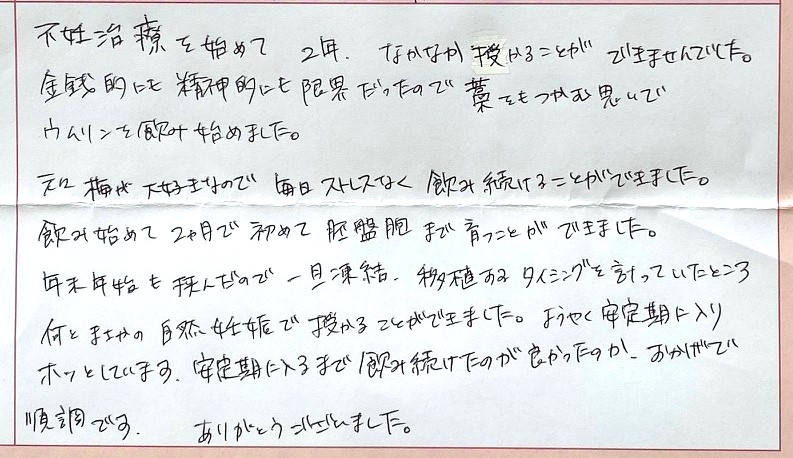 不妊治療を始めて 2年、なかなか授かることができませんでした。
金銭的にも精神的にも限界だったので藁をもつかむ思いで
ウムリンを飲み始めました。
元々梅が大好きなので毎日ストレスなく飲み続けることができました。
飲み始めて2ヶ月で初めて胚盤胞まで育つことができました。
年末年始も挟んだので一旦凍結、移植するタイミングを計っていたところ
何とまさかの自然妊娠で授かることができました。ようやく安定期に入り
ホッとしています。安定期に入るまで飲み続けたのが良かったのか、おかげで
順調です。 ありがとうございました。